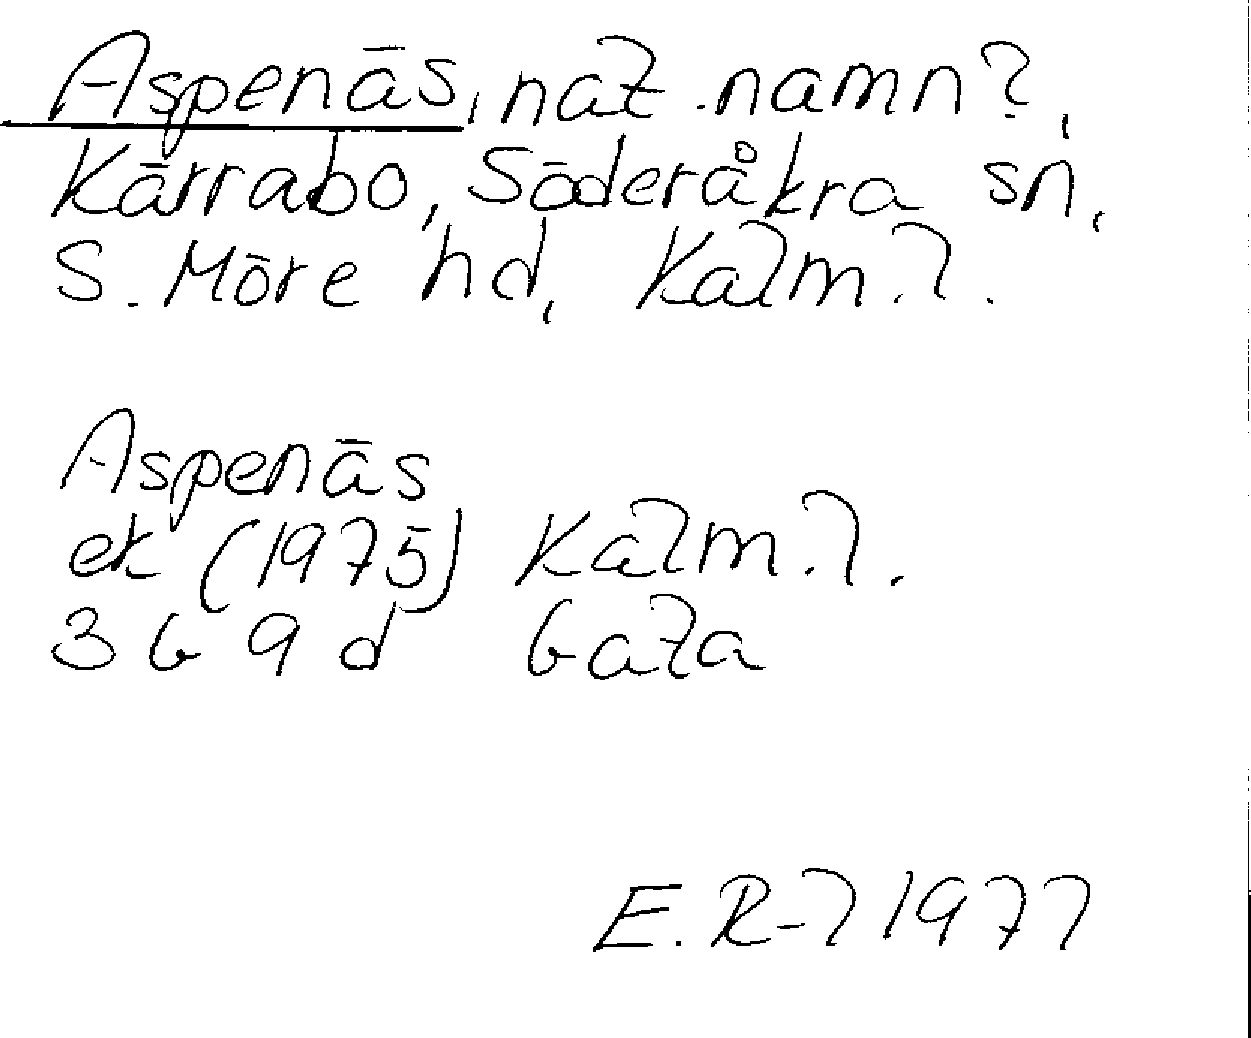 Aspenäs, nat.namn?,
Kärrabo, Söderåkra sn,
S. Möre hd, Kalm. l.
Aspenäs
ek (1975) Kalm. l.
3 G 9 d Gata
E. R-l 1977